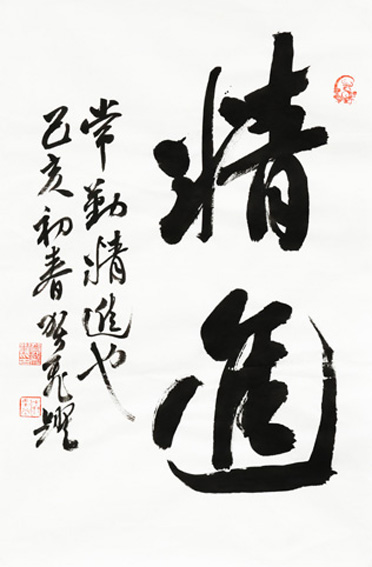 精進
常勤精進也
己亥初春飛躍